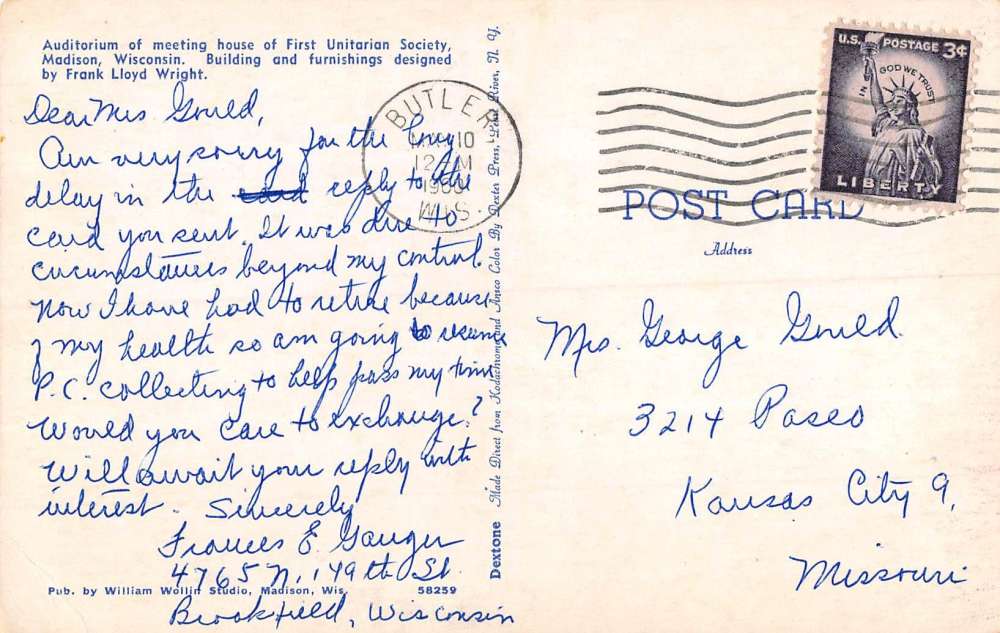 Auditorium of meeting house of First Unitarian Society,
Madison, Wisconsin. Building and furnishings designed
by Frank Lloyd Wright.
Dear Mrs Gould,
Am very sorry for the long
delay in the card reply to the
card you sent. It was due to
circumstances beyond my control.
Now I have had to retire because
of my health so am going to resume
P.C. collecting to help pass my time.
Would you care to exchange?
Will await your reply with
interest. Sincerely
Frances E. Gauger
4765 N. 149th St.
Brookfield, Wisconsin
Pub. by William Wollin Studio, Madison, Wis. 58259
Dextone Made Direct from Kodachrome and Ansco Color By Dexter Press, Pearl River, N. Y.
BUTLER
10
12 M
1960
WIS.
U.S. POSTAGE 3¢
IN GOD WE TRUST
LIBERTY
POST CARD
Address
Mrs. George Gould.
3214 Paseo
Kansas City 9,
Missouri